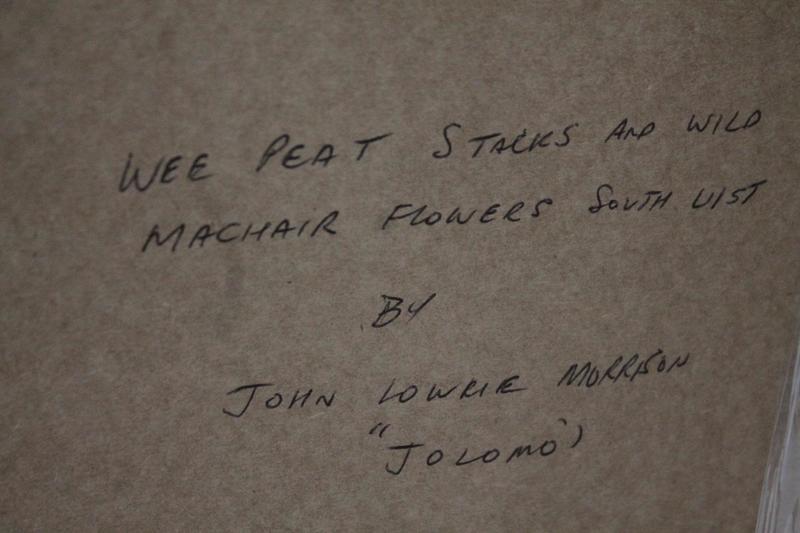 WEE PEAT STACKS AND WILD
MACHAIR FLOWERS SOUTH UIST
BY
JOHN LOWRIE MORRISON
"JOLOMO")